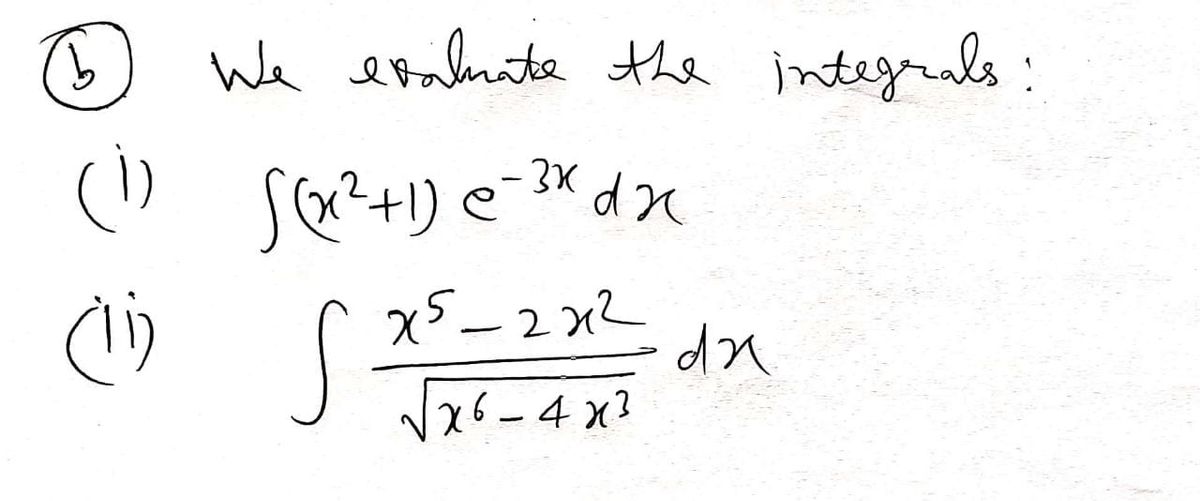 ⓑ We evaluate the integrals:
(i) ∫(x²+1) e⁻³ˣ dx
(ii) ∫ (x⁵ − 2x²)/√(x⁶ − 4x³) dx